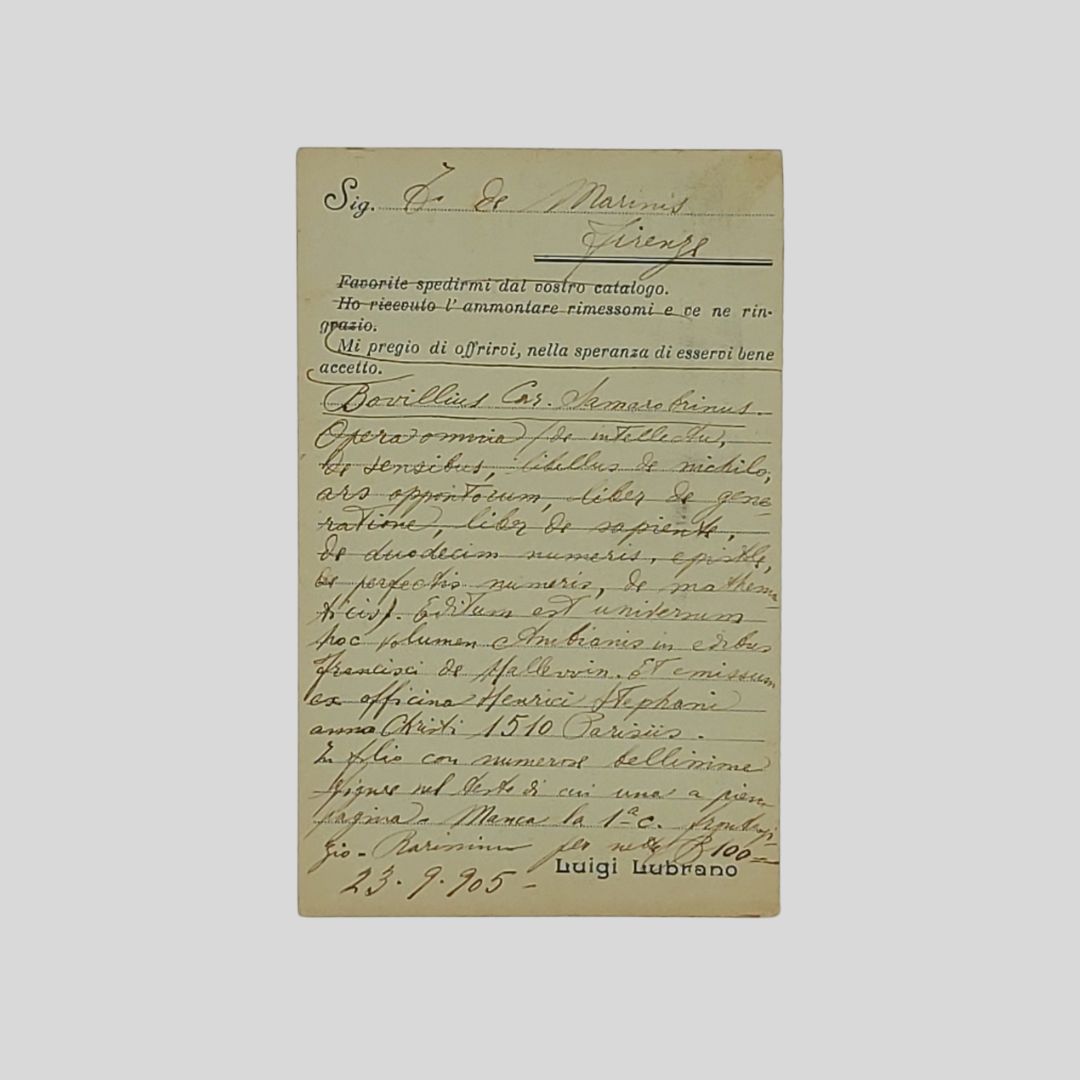 Sig. T. de Marinis
Firenze
Favorite spedirmi dal vostro catalogo.
Ho ricevuto l' ammontare rimessomi e ve ne rin-
grazio.
Mi pregio di offrirvi, nella speranza di esservi bene
accetto.
Bovillius Car. Samarobrinus.
Opera omnia (de intellectu,
de sensibus, libellus de nichilo,
ars oppositorum, liber de gene-
ratione, liber de sapiente,
de duodecim numeris, epistole,
de perfectis numeris, de mathema-
ticis). Editum est universum
hoc volumen Ambianis in edibus
Francisci de Hallewin. Et emissum
ex officina Henrici Stephani
anno Christi 1510 Parisiis.
In folio con numerose bellissime
figure nel testo di cui una a piena
pagina. Manca la 1ª c. frontespi-
zio - Rarissimo per nette 100=
Luigi Lubrano
23. 9. 905 -